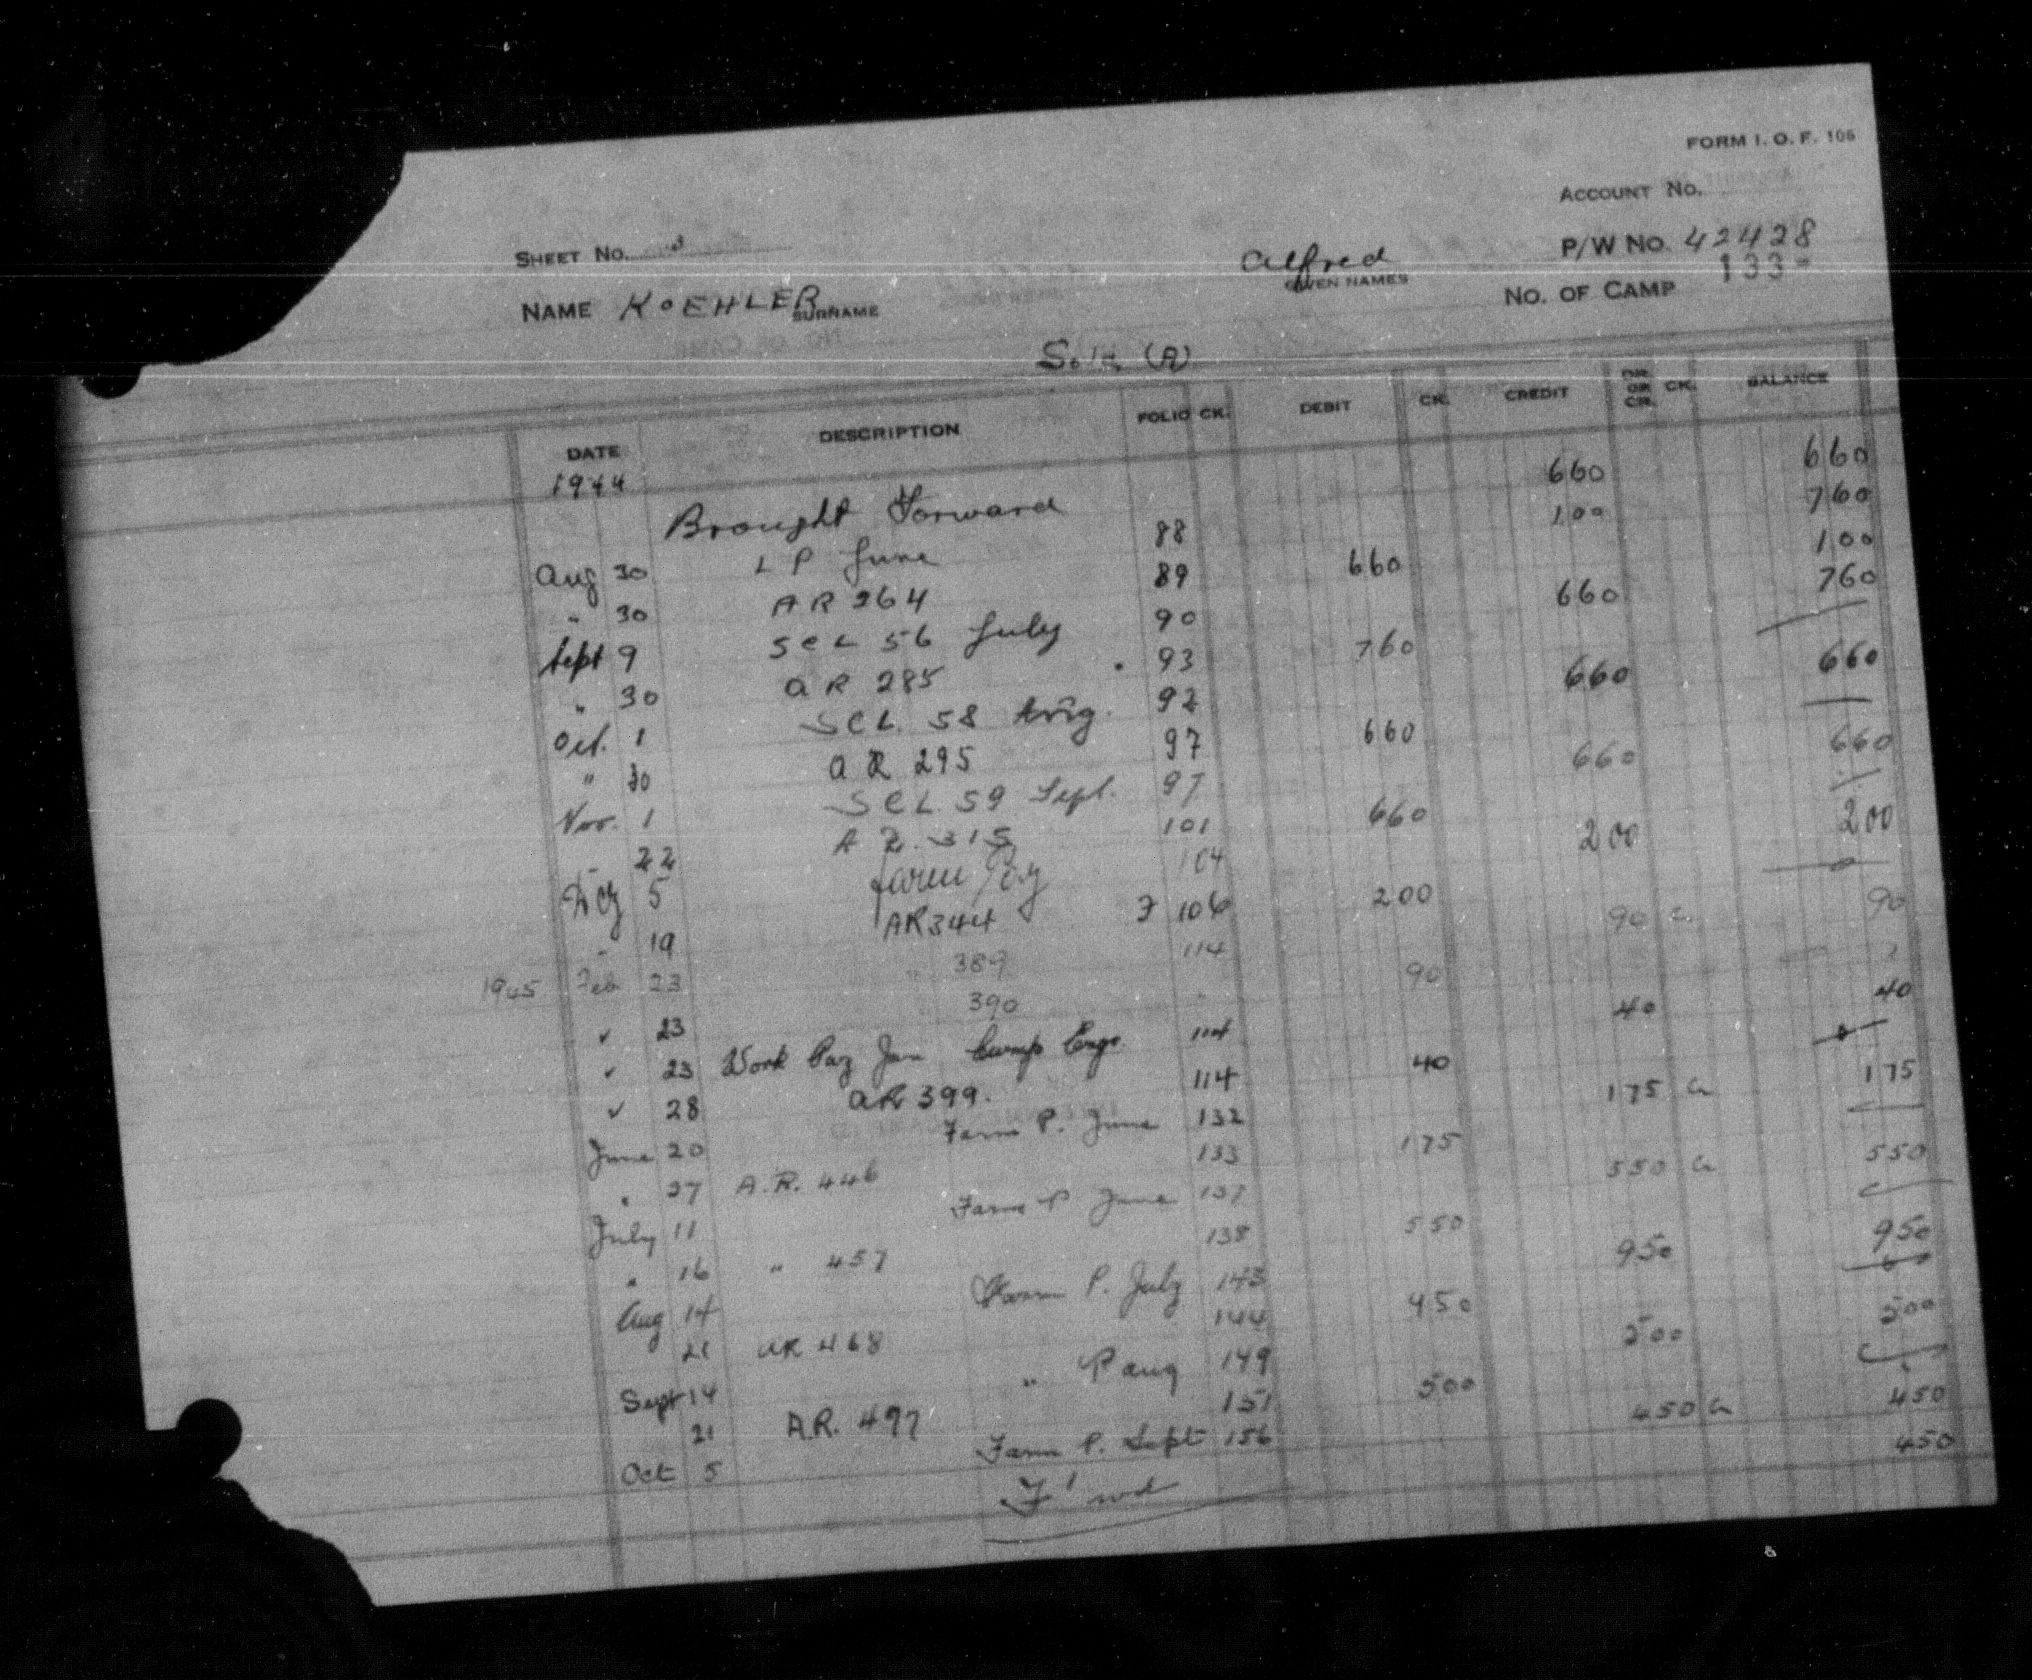 FORM I. O. F. 106
ACCOUNT NO.
SHEET NO.
Alfred
P/W NO. 42428
GIVEN NAMES
133
NAME KOEHLER
SURNAME
NO. OF CAMP
(A)
DATE DESCRIPTION FOLIO CK. DEBIT CK. CREDIT DR. OR CR. CK. BALANCE
1944
Brought Forward 660 660
Aug 30 L P June 88 100 760
" 30 AR 264 89 660 100
Sept 9 SCL 56 July 90 660 760
" 30 AR 285 93 760
Oct. 1 SCL. 58 Aug. 92 660 660
" 30 AR 295 97 660
Nov. 1 SCL. 59 Sept. 97 660 660
22 AR 315 101 660
5 Farm Pay 104 200 200
" 19 AR 344 F 106 200
1945 Feb 23 389 114 90 90
" 23 390 90
" 23 Work Pay Jan Camp 114 40 40
" 28 AR 399. 114 40
June 20 Farm P. June 132 175 175
" 27 A.R. 446 133 175
July 11 Farm P June 137 550 550
" 16 " 457 138 550
Aug 14 Farm P. July 143 950 950
21 AR 468 144 950
Sept 14 " P Aug 149 500 500
21 A.R. 497 151 500
Oct 5 Farm P. Sept 156 450 450
F'wd 450